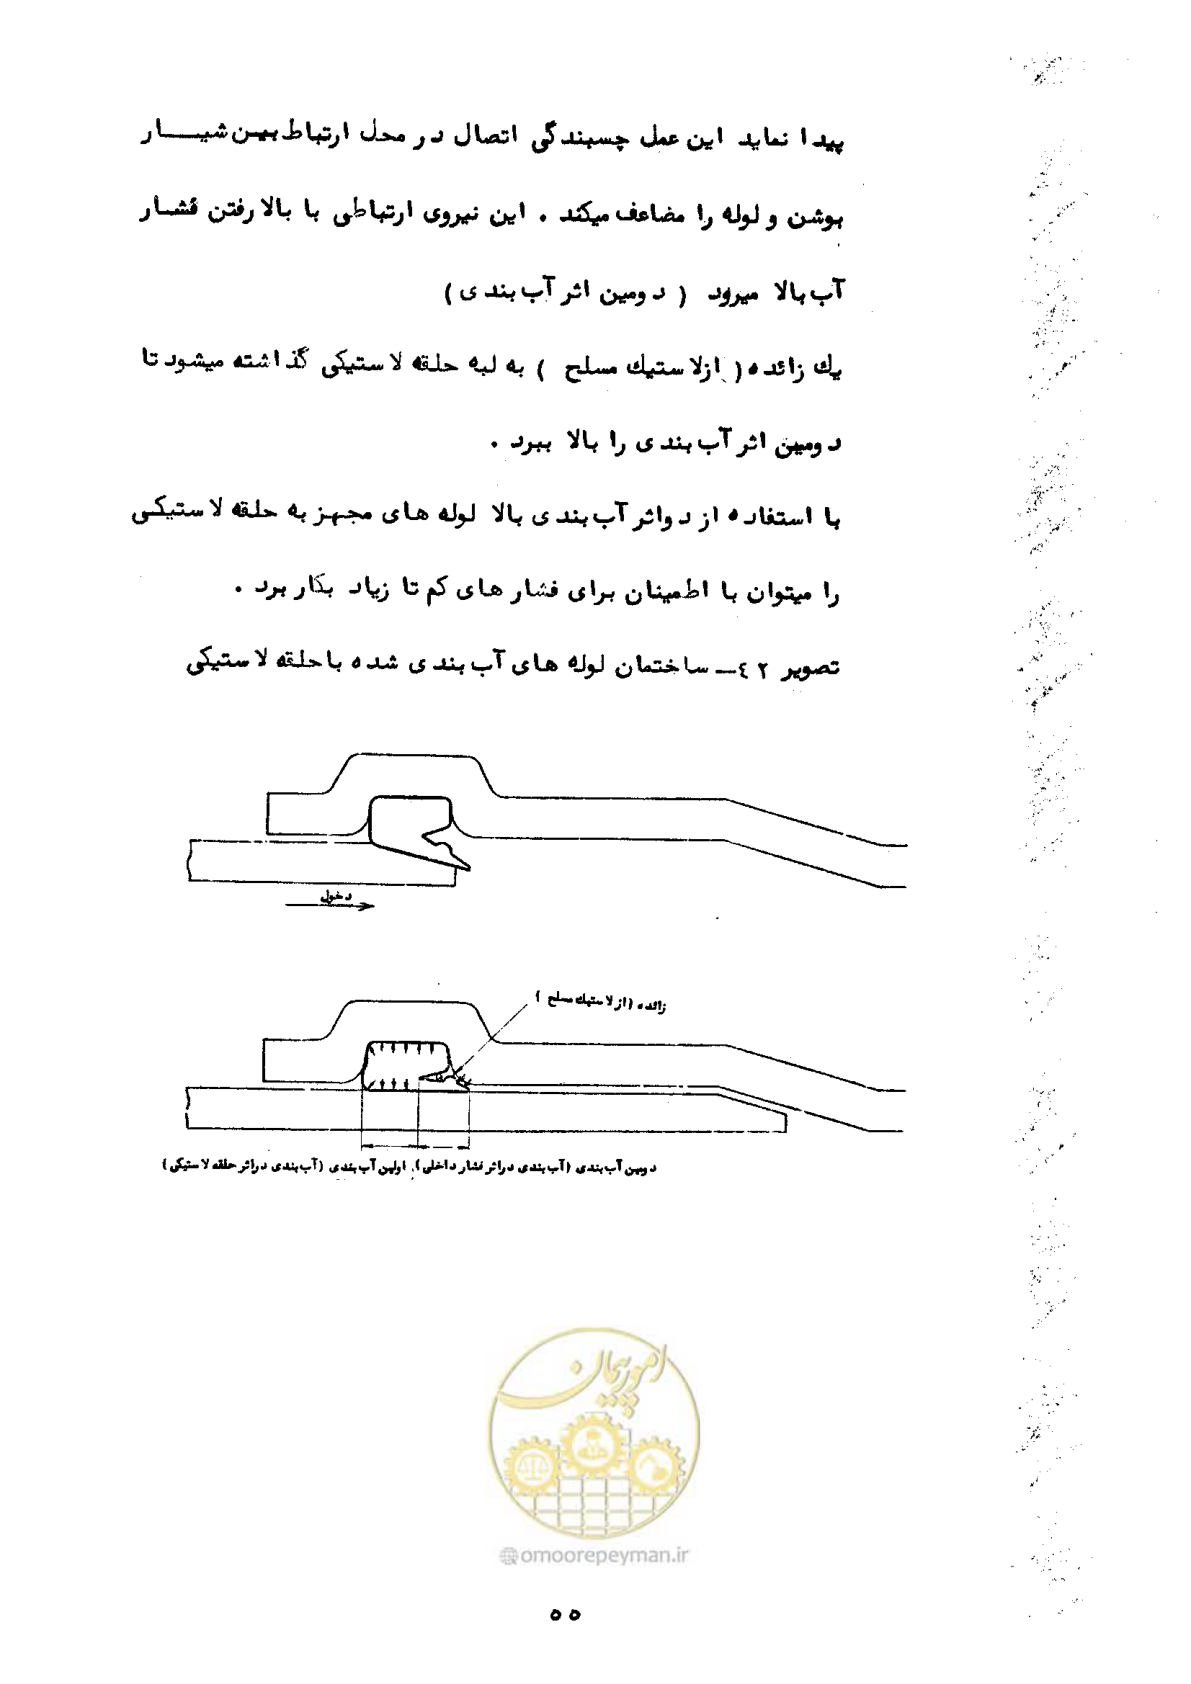 پیدا نماید این عمل چسبندگی اتصال در محل ارتباط بین شیار
بوشن و لوله را مضاعف میکند . این نیروی ارتباطی با بالا رفتن فشار
آب بالا میرود ( دومین اثر آب بندی )
یك زائده ( ازلاستیك مسلح ) به لبه حلقه لاستیکی گذاشته میشود تا
دومین اثر آب بندی را بالا ببرد .
با استفاده از دواثر آب بندی بالا لوله های مجهز به حلقه لاستیکی
را میتوان با اطمینان برای فشار های کم تا زیاد بکار برد .
تصویر ٤٢ــ ساختمان لوله های آب بندی شده باحلقه لاستیکی
دخول
زائده (ازلاستیك مسلح )
دومین آب بندی (آب بندی دراثر فشار داخلی)، اولین آب بندی (آب بندی دراثر حلقه لاستیکی)
امور پیمان
@omoorepeyman.ir
۵۵